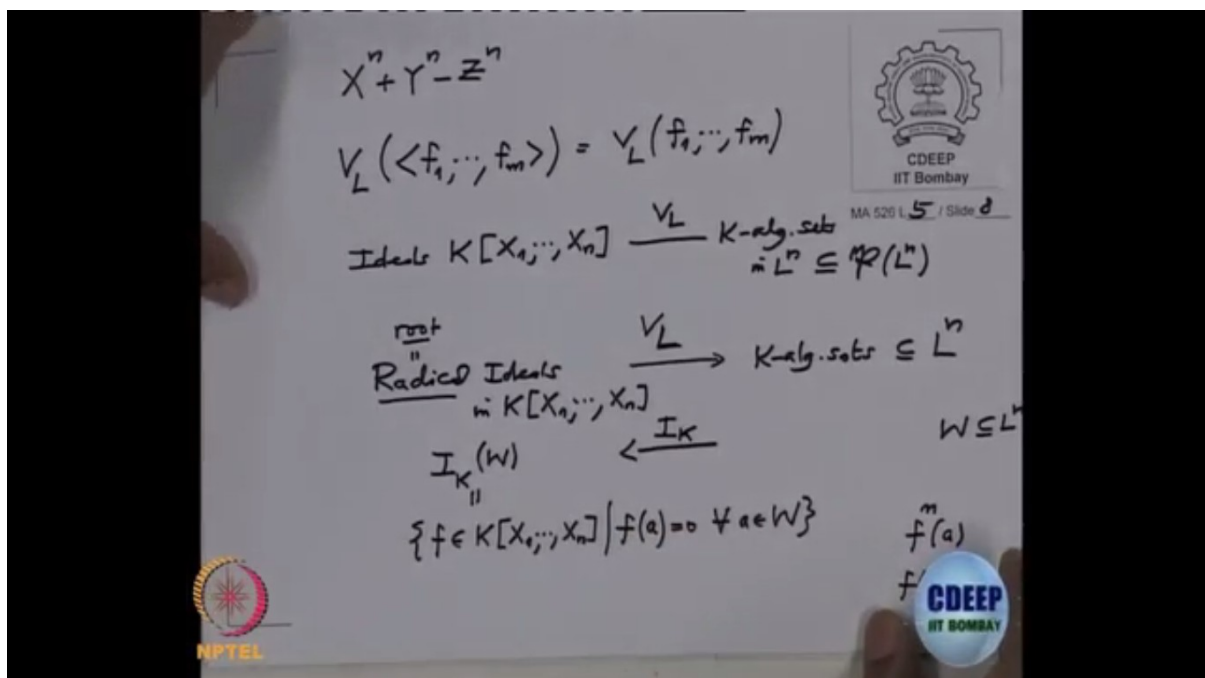 Xⁿ + Yⁿ − Zⁿ
V_L(<f₁,..,f_m>) = V_L(f₁,..,f_m)
CDEEP
IIT Bombay
MA 526 L 5 / Slide 8
Ideals K[X₁,..,Xₙ] V_L K-alg. sets
in Lⁿ ⊆ P(Lⁿ)
root
||
Radical Ideals V_L → K-alg. sets ⊆ Lⁿ
in K[X₁,..,Xₙ]
I_K(W) ← I_K W ⊆ Lⁿ
||
{f ∈ K[X₁,..,Xₙ] | f(a)=0 ∀ a∈W}
fⁿ(a)
f
NPTEL
CDEEP
IIT BOMBAY